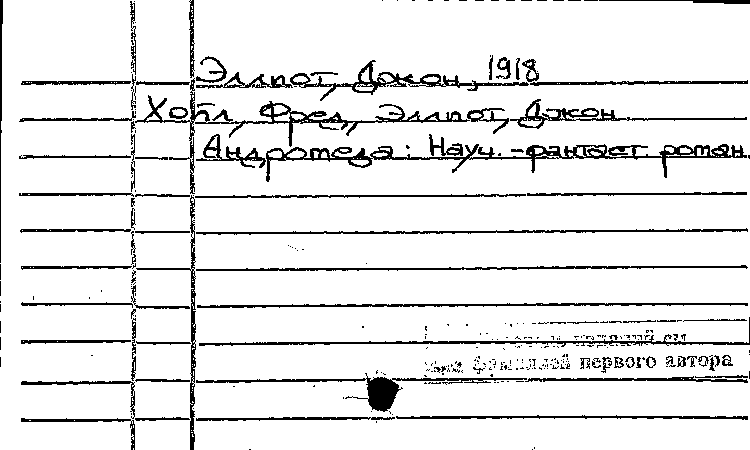 Эллиот, Джон, 1918
Хойл, Фред, Эллиот, Джон
Андромеда: Науч.-фантаст роман
изданий см.
фамилией первого автора